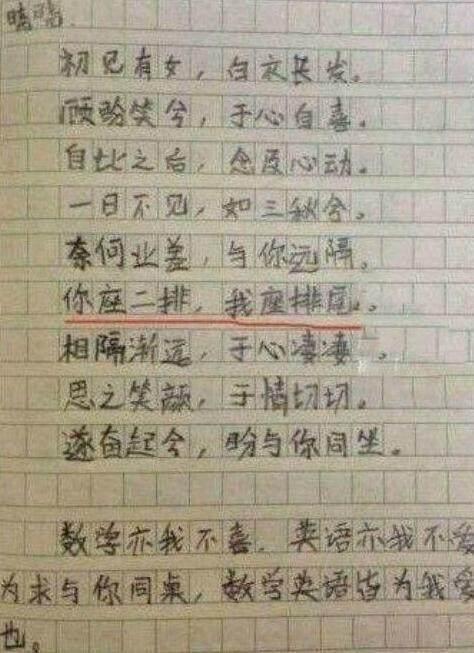 晴晴
初见有女，白衣长发。
顾盼笑兮，于心自喜。
自比之后，念及心动。
一日不见，如三秋兮。
奈何业差，与你远隔。
你座二排，我座排尾。
相隔渐远，于心凄凄。
思之笑颜，于情切切。
遂奋起兮，盼与你同坐。
数学亦我不喜，英语亦我不爱
为求与你同桌，数学英语皆为我爱
也。